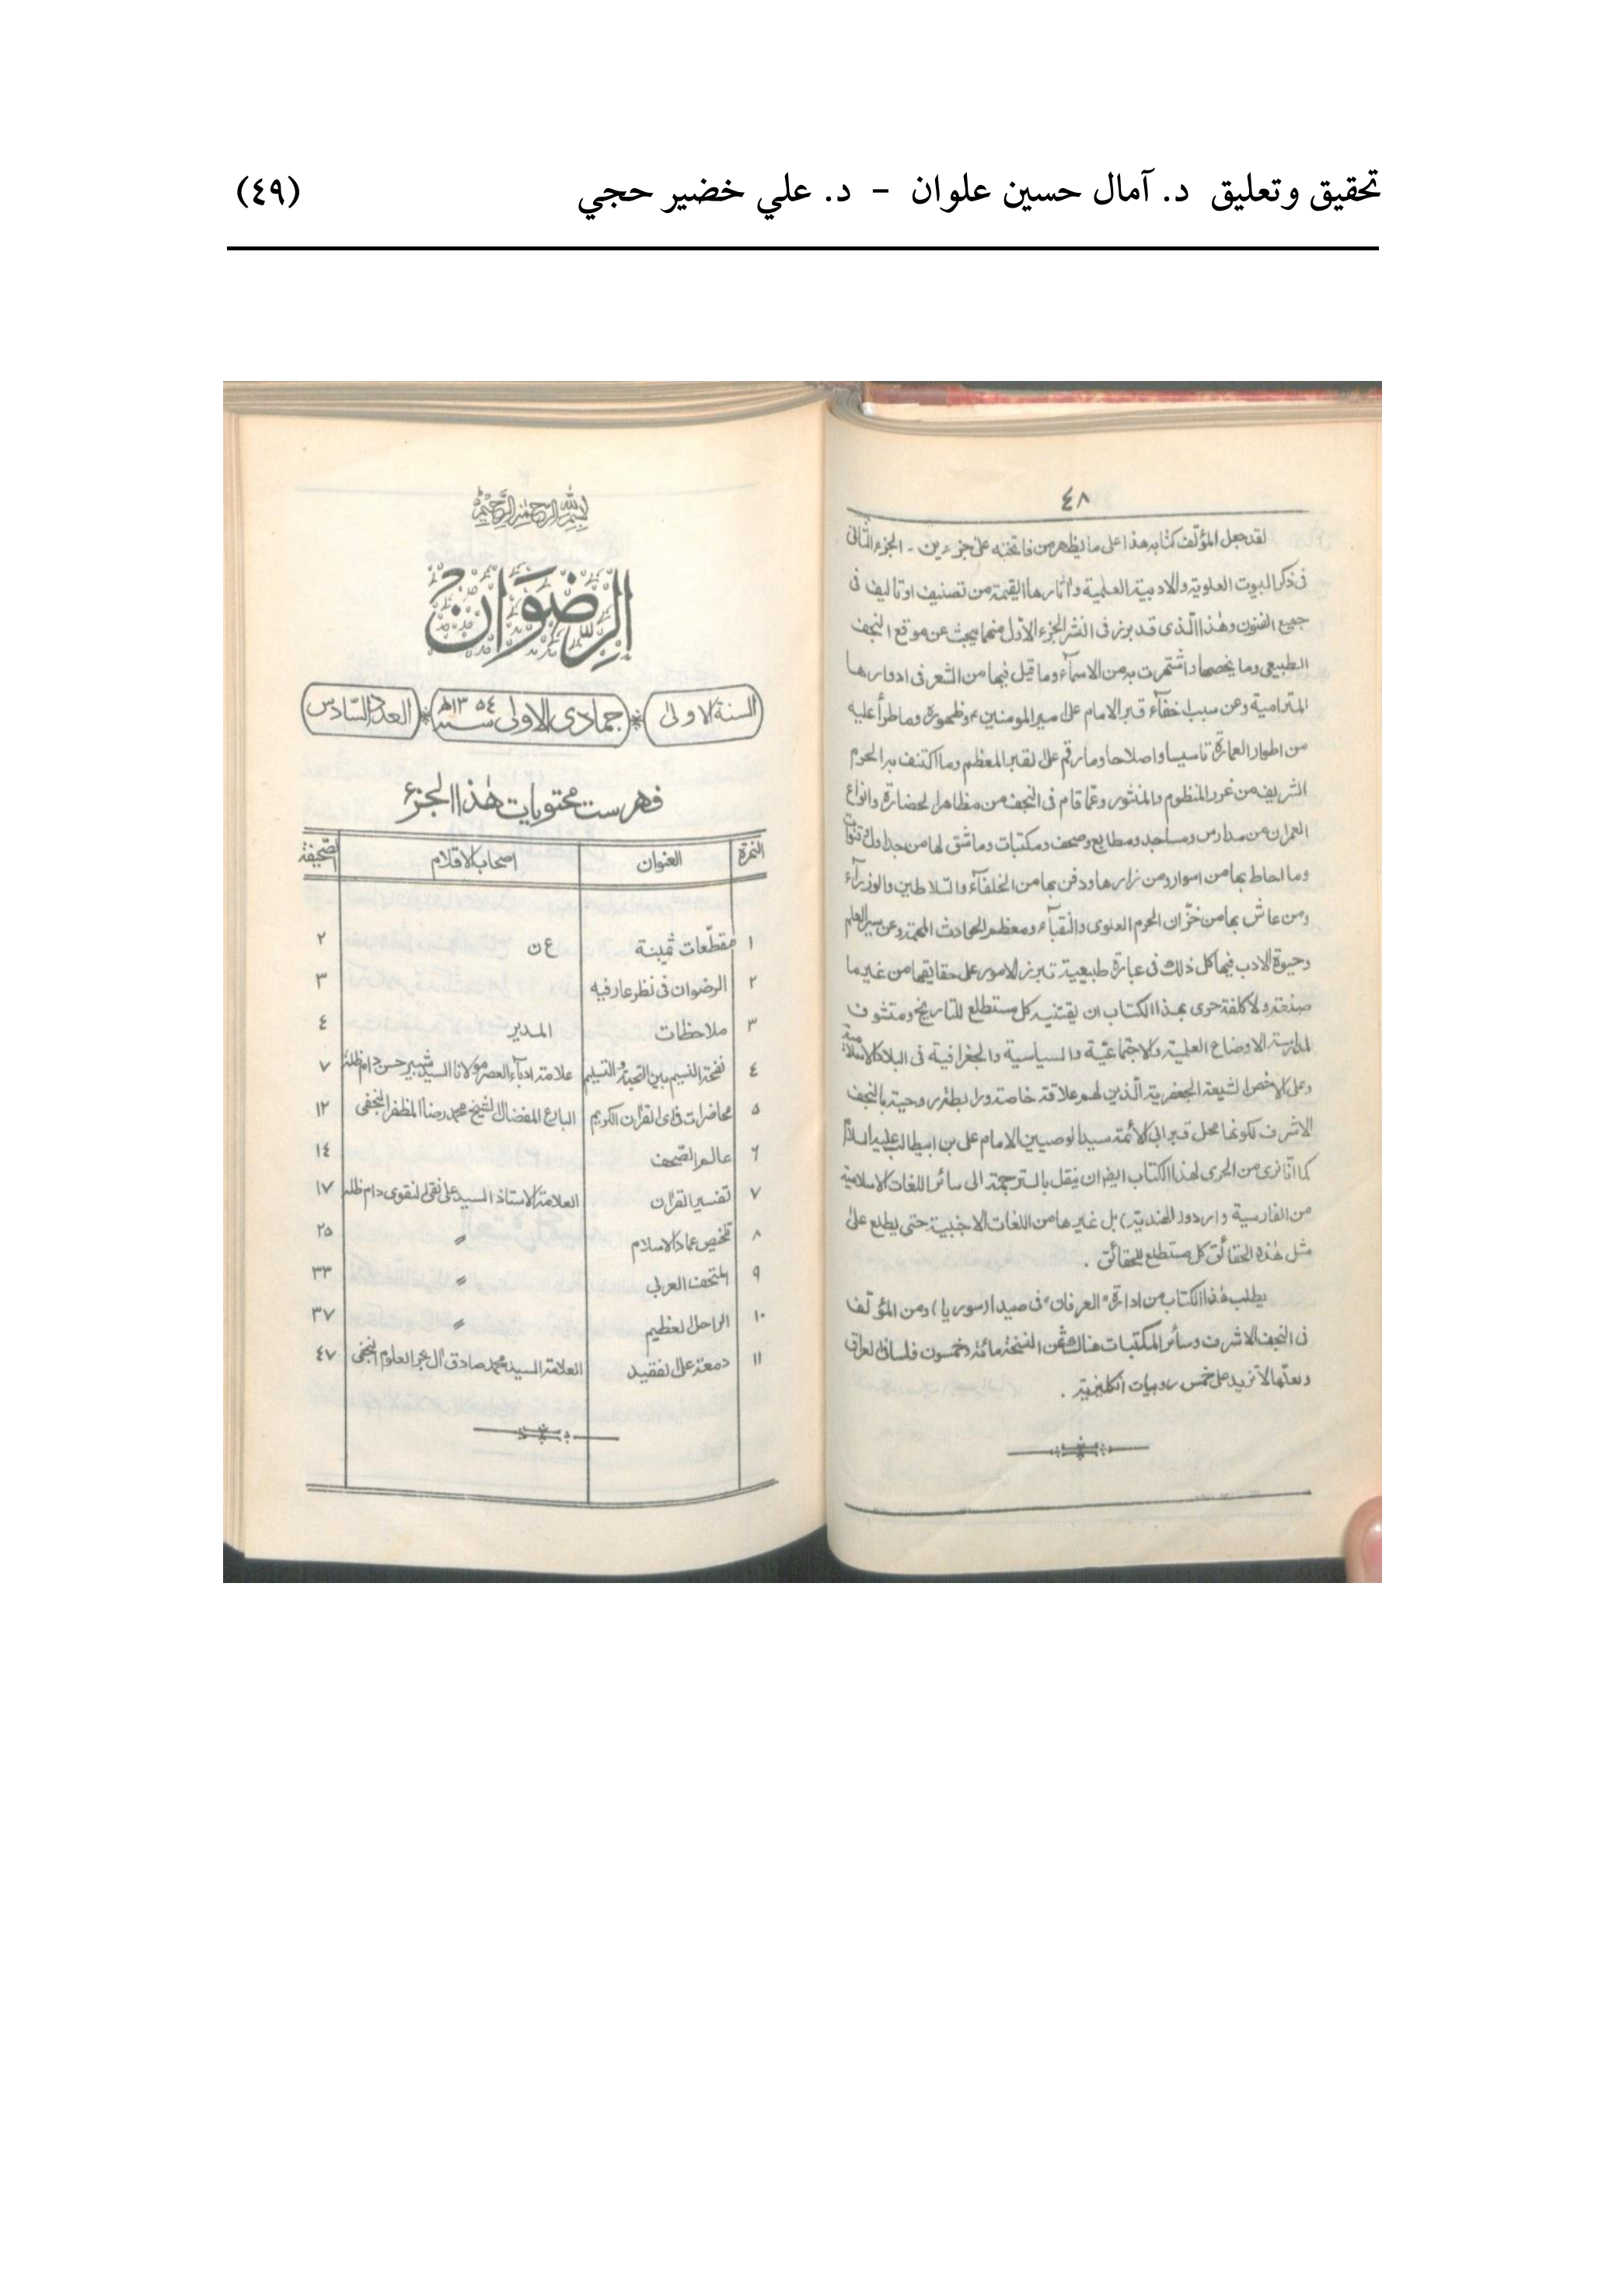 تحقيق وتعليق د. آمال حسين علوان – د. علي خضير حجي (٤٩)
٤٨
لقد جعل المؤلّف كتابه هذا على ما يظهر من فاتحته على جزءين - الجزء الثانى
فى ذكر البيوت العلوية والادبية العلمية واٰثارها القيمة من تصنيف او تأليف فى
جميع الفنون وهذا الّذى قد برز فى النشر الجزء الاوّل منهما يبحث عن موقع النجف
الطبيعى وما يخصها واشتهرت به من الاسمآء وما قيل فيها من الشعر فى ادوارها
المترامية وعن سبب اخفآء قبر الامام على امير المومنين ع وظهوره وما طرأ عليه
من اطوار العمارة تاسيسا واصلاحا وما رقم على القبر المعظم وما اكتنف به الحرم
الشريف من غرر المنظوم والمنثور وعمّا قام فى النجف من مظاهر الحضارة وانواع
العمران من مدارس ومساجد ومطابع وصحف ومكتبات وما شق لها من جداول وقنوات
وما احاط بها من اسوار ومن زارها ودفن بها من الخلفآء والسّلاطين والوزرآء
ومن عاش بها من خزّان الحرم العلوى والنقبآء ومعظم الحوادث المهمة وعن سير العلم
وحيوة الادب فيها كل ذلك فى عبارة طبيعية تبرز الامور على حقايقها من غير ما
صنعة ولا كلفة حرى بهذا الكتاب ان يقتنيه كل مستطلع للتاريخ ومتشوف
لمدارسة الاوضاع العلمية والاجتماعيّة والسياسية والجغرافية فى البلاد الاسلامية
وعلى الاخص الشيعة الجعفرية الّذين لهم علاقة خاصة ورابطة روحية بالنجف
الاشرف لكونها محل قبر ابى الأئمة سيد الوصيين الامام على بن ابيطالب عليه السلام
كما انّا نرى من الحرى لهذا الكتاب ايضا ان ينقل بالترجمة الى سائر اللغات الاسلامية
من الفارسية و(اردو الهندية) بل غيرها من اللغات الاجنبية حتى يطلع على
مثل هذه الحقائق كل مستطلع للحقائق .
يطلب هذا الكتاب من ادارة "العرفان" فى صيدا (سوريا) ومن المؤلّف
فى النجف الاشرف وسائر المكتبات هنالك ثمن النسخة مائة وخمسون فلسا فى العراق
ولعلّها لا تزيد على خمس روبيات انكليزية .
بسم الله الرحمن الرحيم
الرّضوان
السنة الاولى * جمادى الاولى سنة ١٣٥٤هـ * العدد السّادس
فهرست محتويات هذا الجزء
النمرة العنوان اصحاب الاقلام الصّحيفة
١ مقطّعات ثمينة ع ن ٢
٢ الرضوان فى نظر عارفيه ٣
٣ ملاحظات المدير ٤
٤ نفحة النسيم بين التحية والتسليم علامة ادبآء العصر مولانا السيد شبير حسن دام ظله ٧
٥ محاضرات فى اى القراٰن الكريم البارع المفضال الشيخ محمد رضا المظفر النجفى ١٢
٦ عالم الصّحف ١٤
٧ تفسير القراٰن العلامة الاستاذ السيد على نقى النقوى دام ظله ١٧
٨ تلخيص عماد الاسلام 〃 ٢٥
٩ المتحف العربى 〃 ٣٣
١٠ الراحل العظيم 〃 ٣٧
١١ دمعة على الفقيد العلامة السيد محمد صادق اٰل بحر العلوم النجفى ٤٧